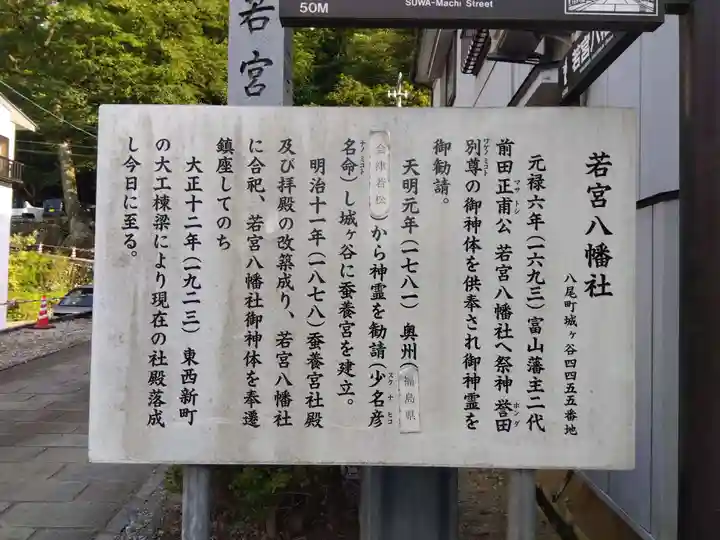 50M
SUWA-Machi Street
若宮
若宮八
若宮八幡社
八尾町城ヶ谷四四五五番地
元禄六年(一六九三)富山藩主二代
前田正甫公 若宮八幡社へ祭神 誉田
別尊の御神体を供奉され御神霊を
御勧請。
天明元年(一七八一) 奥州(福島県
会津若松)から神霊を勧請(少名彦
名命)し城ヶ谷に蚕養宮を建立。
明治十一年(一八七八)蚕養宮社殿
及び拝殿の改築成り、若宮八幡社
に合祀、若宮八幡社御神体を奉遷
鎮座してのち
大正十二年(一九二三) 東西新町
の大工棟梁により現在の社殿落成
し今日に至る。